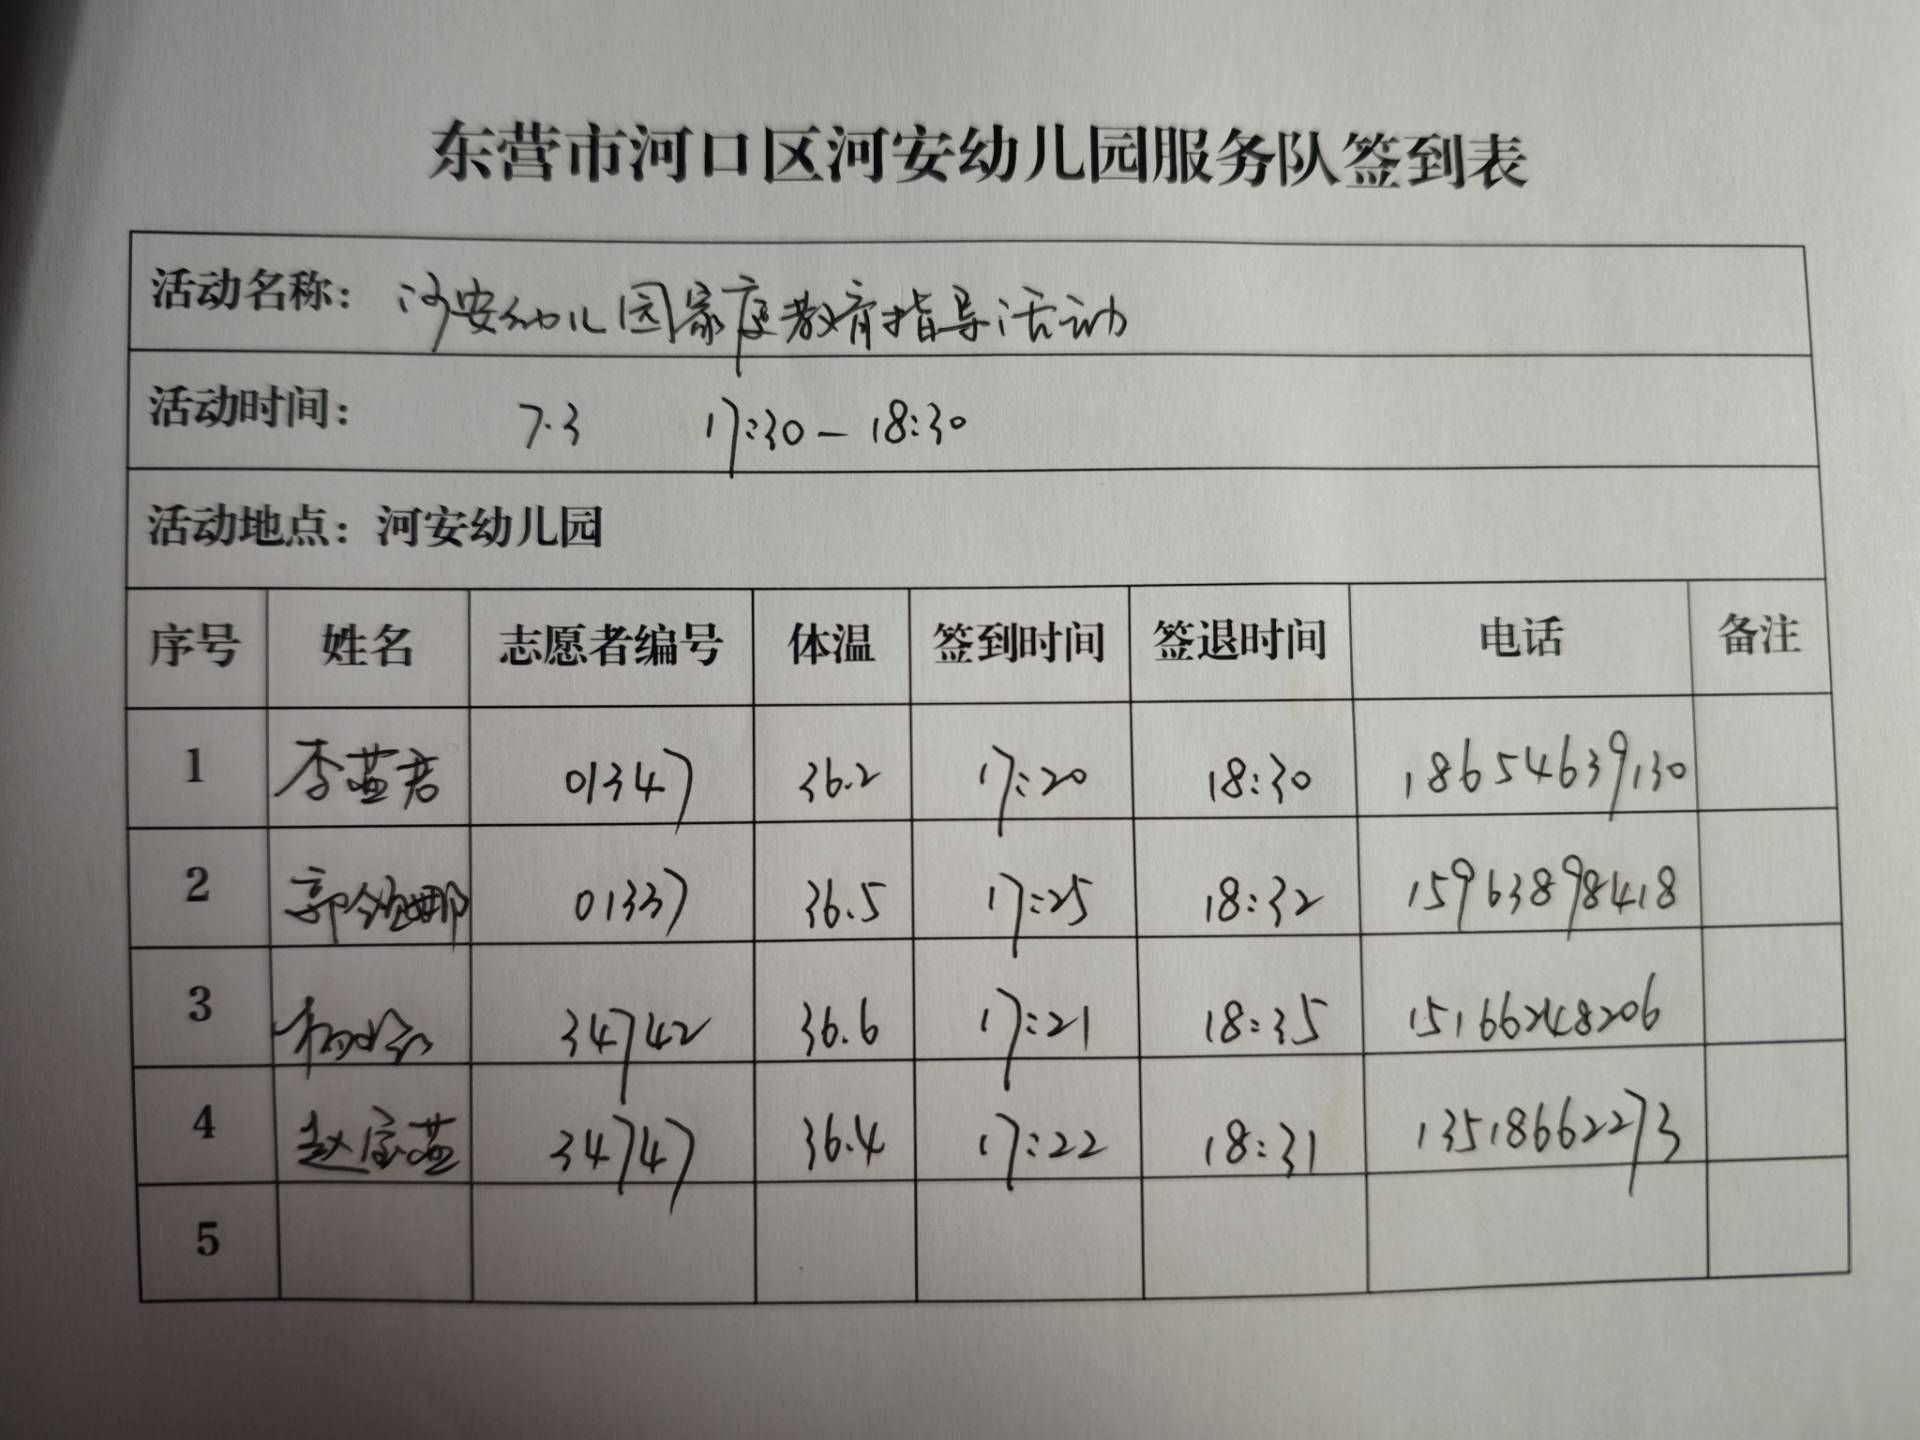 东营市河口区河安幼儿园服务队签到表
活动名称： 河安幼儿园家庭教育指导活动
活动时间： 7.3 17:30－18:30
活动地点：河安幼儿园
序号 姓名 志愿者编号 体温 签到时间 签退时间 电话 备注
1 李燕君 01347 36.2 17:20 18:30 18654639130
2 郭 娜 01337 36.5 17:25 18:32 15963898418
3 杨 34742 36.6 17:21 18:35 15166248206
4 赵宝燕 34747 36.4 17:22 18:31 13518662273
5